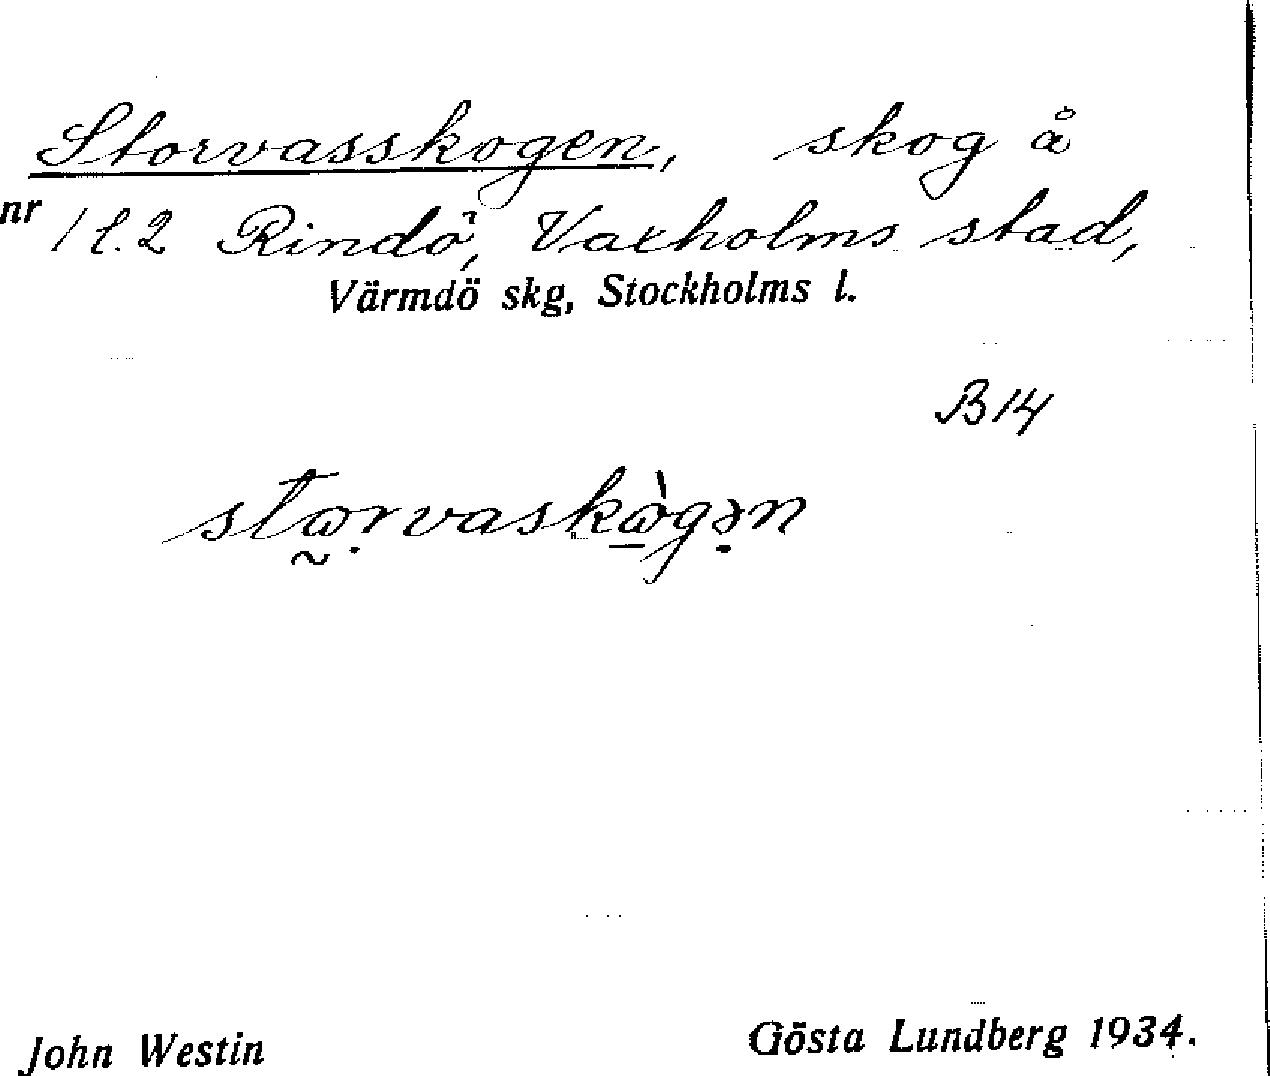 Storvasskogen, skog å
nr 1 l.2 Rindö, Vaxholms stad,
Värmdö skg, Stockholms l.
B 14
stω̰ṛvaskὼ̱gə̣n
John Westin Gösta Lundberg 1934.